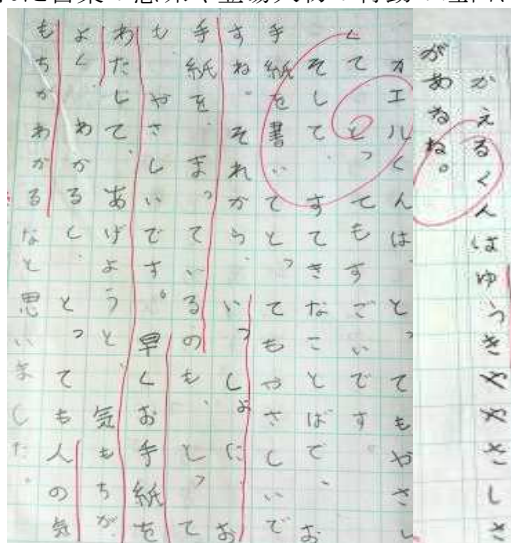 かえるくんはゆうきややさしさ
があるね。
カエルくんは、とってもやさし
くてとってもすごいです
そしてすてきなことばで、お
手紙を書いてとってもやさしいで
すね。それからいっしょにお
手紙を、まっているのも、とって
もやさしいです。早くお手紙を
わたして、あげようと、気もちが
よくわかるし、とっても人の気
もちがわかるなと思いました。